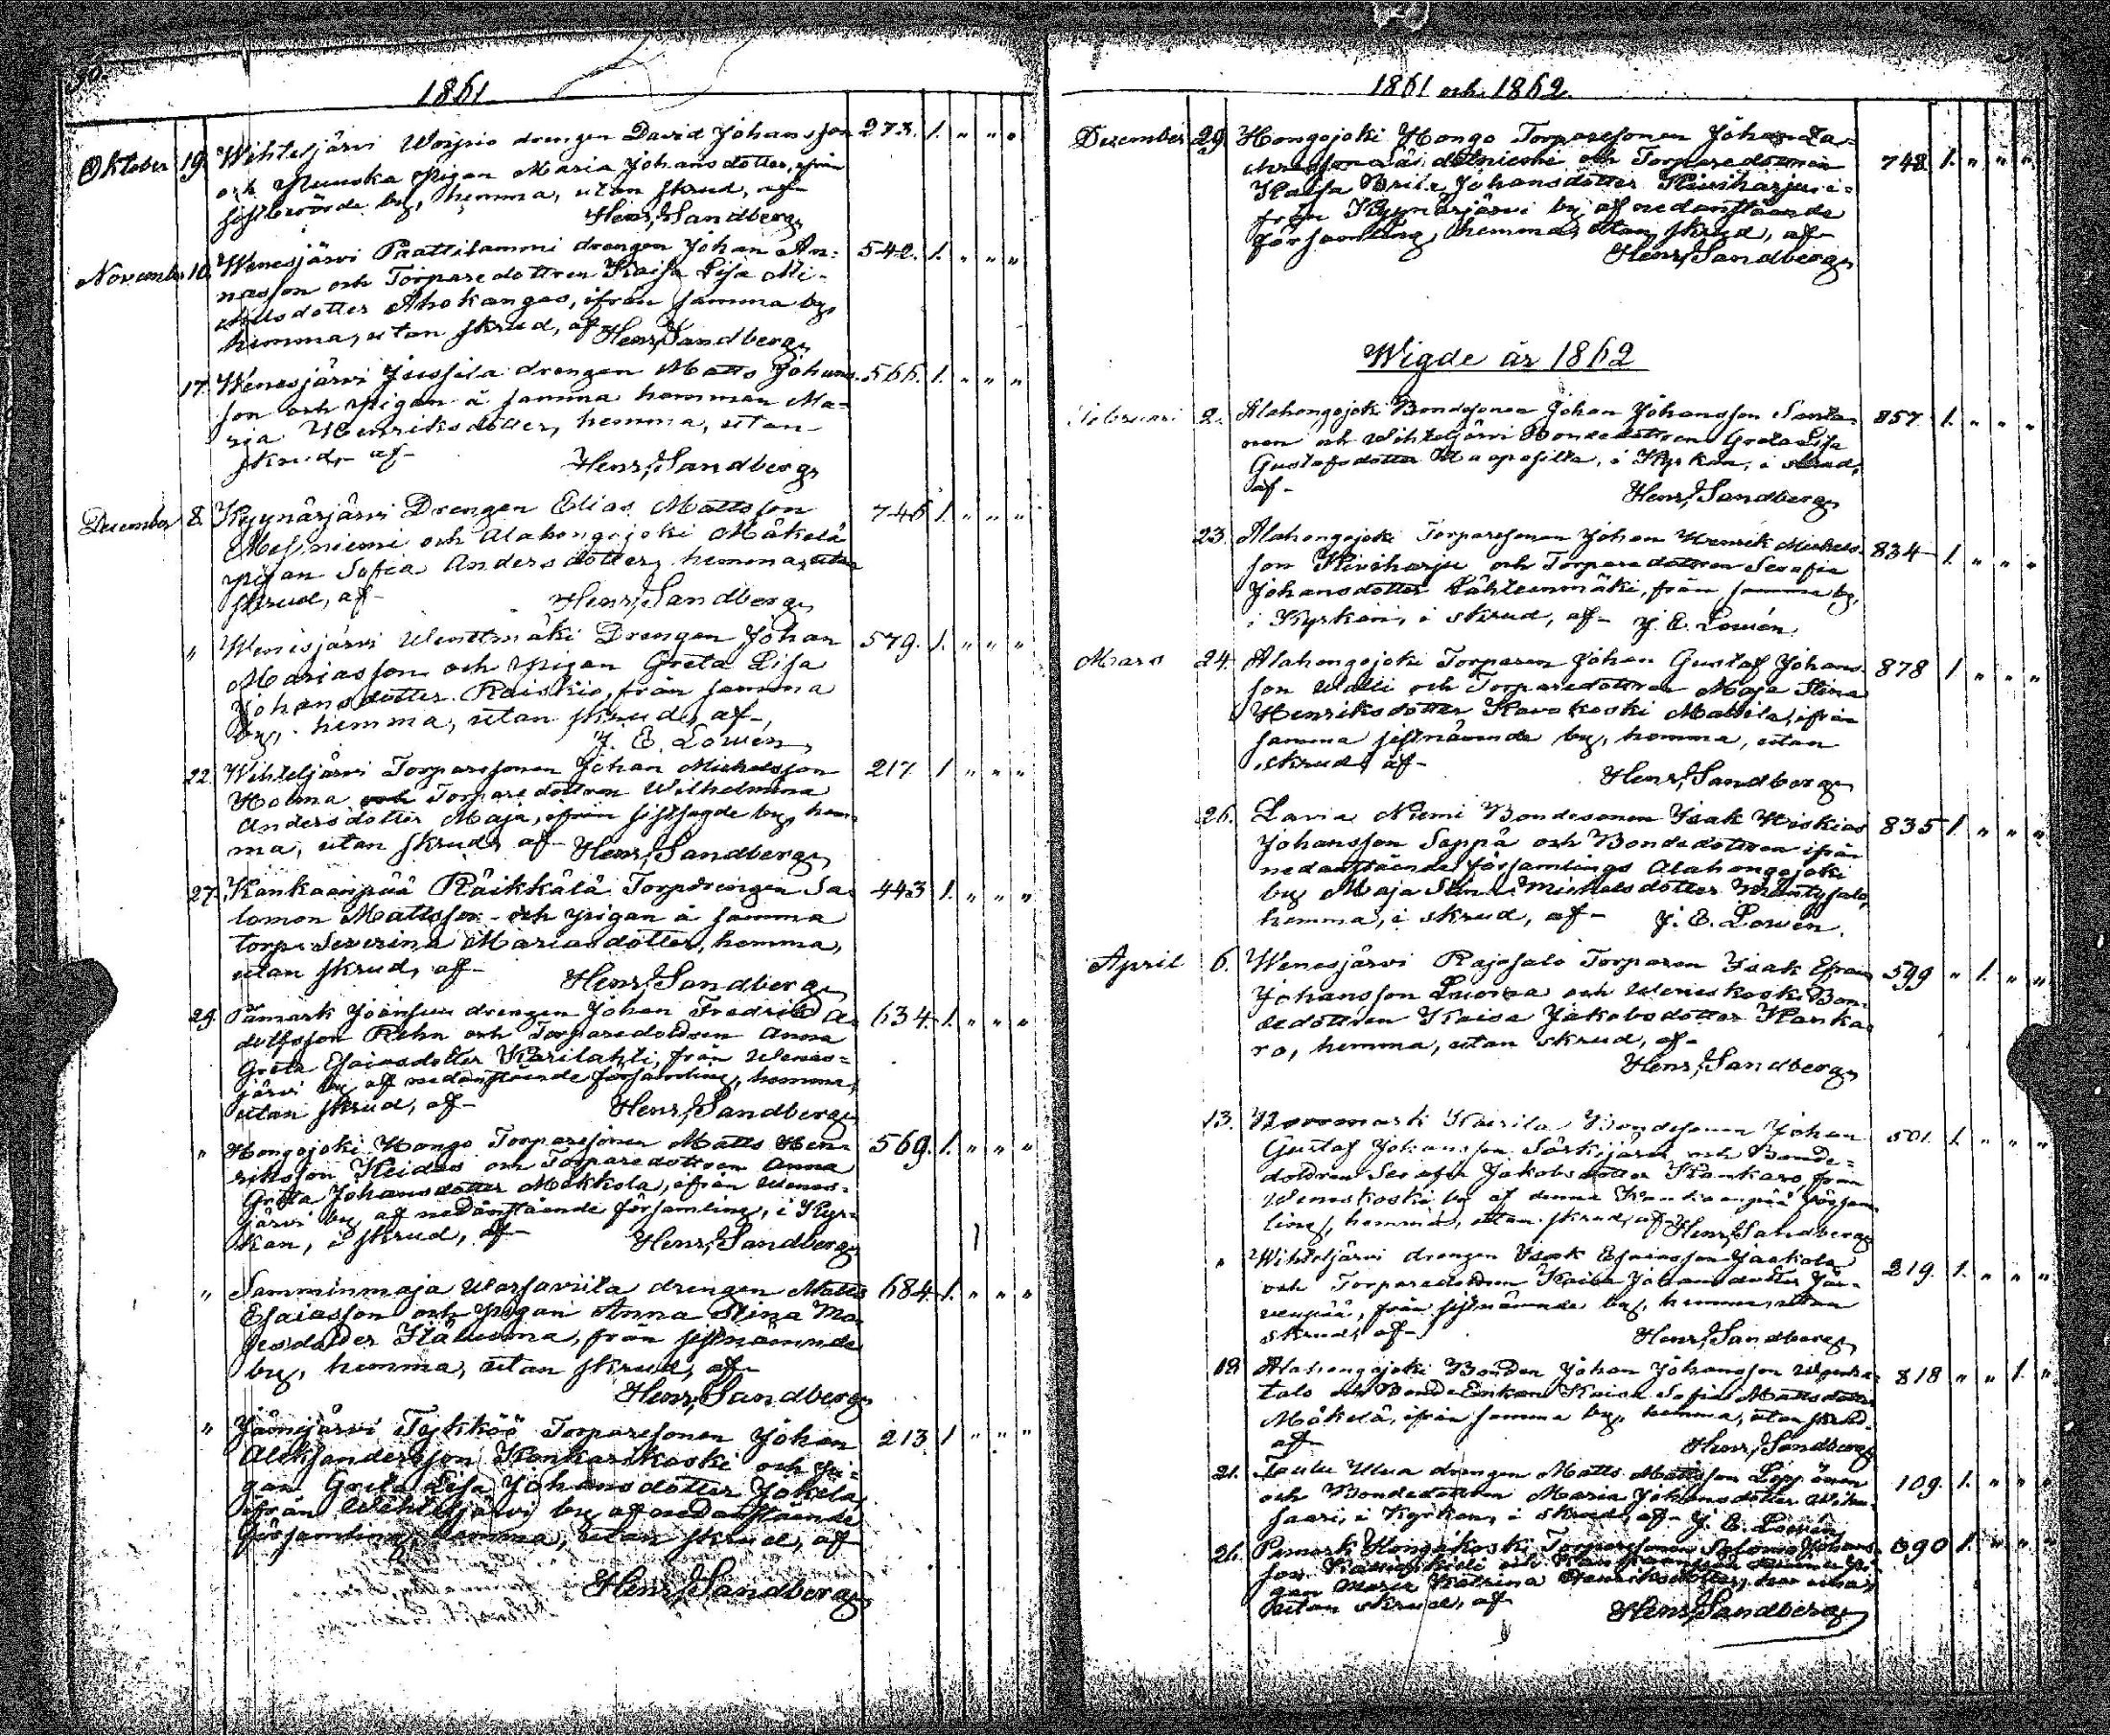 1861
Oktober 19. Wihtesjärvi Worpio drengen David Johansson 273. 1. " " "
och Pigan Maria Johansdotter, ifrån
sistberörde by, hemma, utan skrud, af
Henr. Sandberg.
November 10. Wenesjärvi Paattilammi drengen Johan An= 542. 1. " " "
nasson och Torparedottren Kaisa Lisa Mi=
chelsdotter Ahokangas, ifrån samma by,
hemma, utan skrud, af Henr. Sandberg.
17. Wenesjärvi Jussila drengen Matts Johans- 566. 1. " " "
son och pigan å samma hemman Ma=
ria Henriksdotter, hemma, utan
skrud, af
Henr. Sandberg
December 8. Kyynärjärvi Drengen Elias Mattsson 746 1. " " "
Mesiniemi och Alahongojoki Mäkelä
pigan Sofia Andersdotter, hemma, utan
skrud, af
Henr. Sandberg.
" Wenesjärvi Wenttmäki Drengen Johan 579. 1. " " "
Mariasson och pigan Greta Lisa
Johansdotter Raiskio, från samma
by, hemma, utan skrud, af
J. E. Lowén.
22. Wihteljärvi Torparesonen Johan Michelsson 217. 1 " " "
Holma och Torparedottren Wilhelmina
Andersdotter Maja, ifrån sistsagde by, hem-
ma, utan skrud, af Henr. Sandberg.
27. Kankaanpää Räikkälä Torpdrengen Sa- 443 1. " " "
lomon Mattsson och pigan å samma
torp Severina Mariasdotter, hemma,
utan skrud, af
Henr. Sandberg
29. Påmark drengen Johan Fredrik A- 634. 1. " " "
dolfsson Rehn och Torparedottren Anna
Greta Esaiasdotter Karilahti, från Wenes=
järvi by af nedanstående församling, hemma,
utan skrud, af
Henr. Sandberg
" Hongojoki Hongo Torparesonen Matts Hen- 569. 1. " " "
riksson Keidas och Torparedottren Anna
Greta Johansdotter Mokkola, ifrån Wenes-
järvi by af nedanstående församling, i Kyr-
kan, i skrud, af
Henr. Sandberg
" Samminmaja Warsaviita drengen Matts 684. 1. " " "
Esaiasson och pigan Anna Stina Mo-
sesdotter Kiäluoma, från sistnämnde
by, hemma, utan skrud, af
Henr. Sandberg
" Jämijärvi Tykköö Torparesonen Johan 213. 1 " " "
Aleksandersson Kankarikoski och pi=
gan Greta Lisa Johansdotter Jokela,
ifrån Wihteljärvi by af nedanstående
församling, hemma, utan skrud, af
Henr. Sandberg
1861 och 1862.
December 29. Hongojoki Hongo Torparesonen Johan Za=
chrisson och Torparedottren 748. 1. " " "
Kaisa Brita Johansdotter Kiviharju i=
från Kyynärjärvi by af nedanstående
församling, hemma, utan skrud, af
Henr. Sandberg
Wigde år 1862
Februari 2. Alahongojoki Bondesonen Johan Johansson Santa- 857. 1. " " "
nen och Wihteljärvi Bondedottren Greta Lisa
Gustafsdotter, i Kyrkan, i skrud,
af
Henr. Sandberg
23. Alahongojoki Torparesonen Johan Henrik Michels- 834 1. " " "
son Kiviharju och Torparedottren Serafia
Johansdotter Lähteenmäki, från samma by,
i Kyrkan, i skrud, af J. E. Lowén.
Mars 24. Alahongojoki Torparen Johan Gustaf Johans- 878 1 " " "
son Walli och Torparedottren Maja Stina
Henriksdotter Kavokoski Mattila, ifrån
samma sistnämnde by, hemma, utan
skrud, af
Henr. Sandberg
26. Lavia Niemi Bondesonen Isak Hiskias 835 1. " " "
Johansson Seppä och Bondedottren ifrån
nedanstående församlings Alahongojoki
by Maja Stina Michelsdotter Mäntysalo,
hemma, i skrud, af J. E. Lowén.
April 6. Wenesjärvi Rajasalo Torparen Isak Efraim 599 " 1. " "
Johansson Luoma och Weneskoski Bon-
dedottren Kaisa Jakobsdotter Kanka-
ro, hemma, utan skrud, af
Henr. Sandberg
13. Norrmark Kairila Bondesonen Johan 501. 1. " " "
Gustaf Johansson Särkijärvi och Bonde=
dottren Serafia Jakobsdotter Kankaro, från
Weneskoski by af denna Kankaanpää försam-
ling, hemma, utan skrud, af Henr. Sandberg
" Wihteljärvi drengen Isak Esaiasson Jaakola 219. 1. " " "
och Torparedottren Kaisa Johansdotter Jär-
venpää, från sistnämnde by, hemma, utan
skrud, af
Henr. Sandberg
19. Alahongojoki Bonden Johan Johansson 818 " " 1. "
talo och Bonde Enkan Kaisa Sofia Mattsdotter
Mäkelä, ifrån samma by, hemma, utan skrud
af
Henr. Sandberg
21. drengen Matts Mattsson Leppänen 109. 1. " " "
och Bondedottren Maria Johansdotter Wiha-
saari, i Kyrkan, i skrud, af J. E. Lowén.
26. Pomark Hongakoski Torparesonen Salomo Johans- 690 1. " " "
son och pi-
gan Maria Katrina Henriksdotter, hemma,
utan skrud, af
Henr. Sandberg